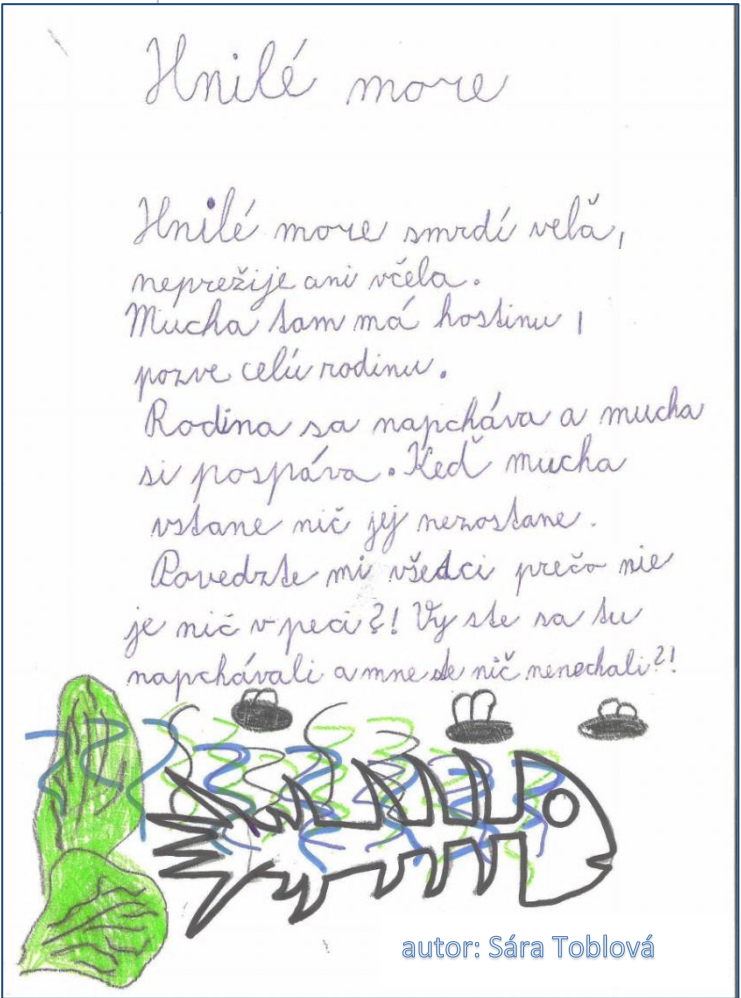 Hnilé more
Hnilé more smrdí velă,
neprežije ani včela.
Mucha tam má hostinu,
pozve celú rodinu.
Rodina sa napcháva a mucha
si pospáva. Keď mucha
vstane nič jej nezostane.
Povedzte mi všedci prečo nie
je nič v peci?! Vy ste sa tu
napchávali a mne ste nič nenechali?!
autor: Sára Toblová